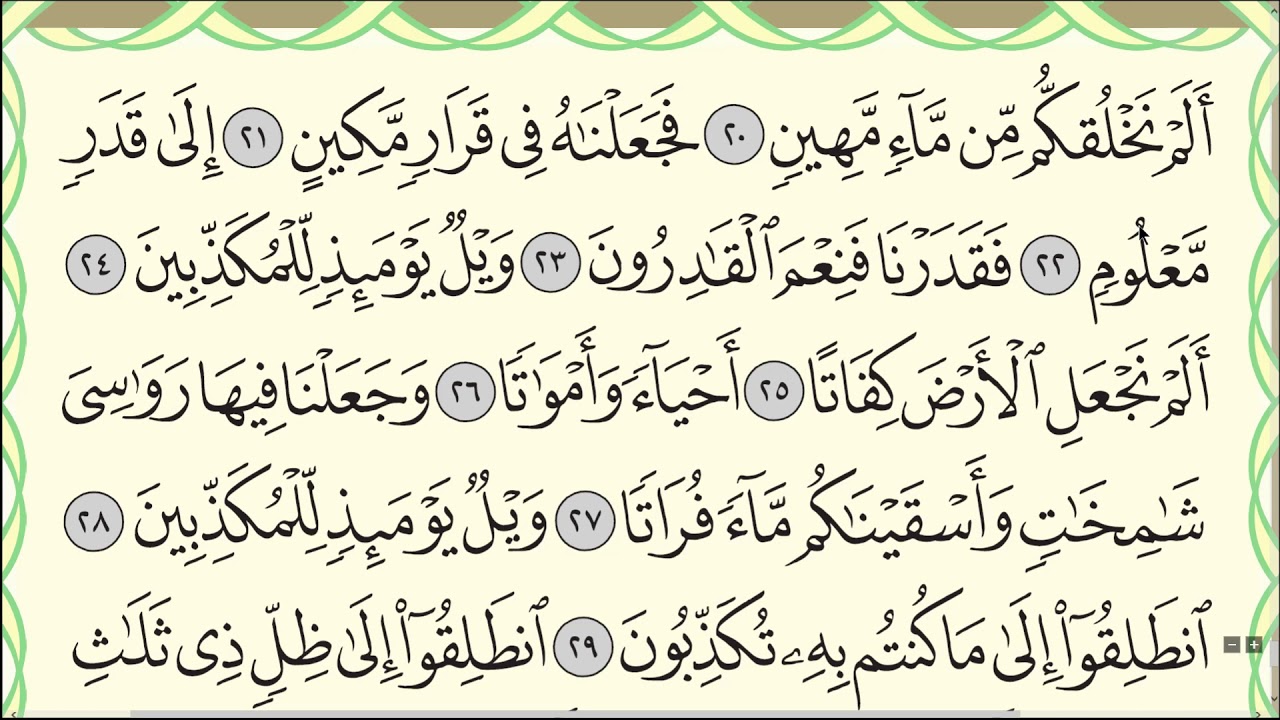 أَلَمْ نَخْلُقكُّم مِّن مَّآءٍ مَّهِينٍ ٢٠ فَجَعَلْنَٰهُ فِى قَرَارٍ مَّكِينٍ ٢١ إِلَىٰ قَدَرٍ
مَّعْلُومٍ ٢٢ فَقَدَرْنَا فَنِعْمَ ٱلْقَٰدِرُونَ ٢٣ وَيْلٌ يَوْمَئِذٍ لِّلْمُكَذِّبِينَ ٢٤
أَلَمْ نَجْعَلِ ٱلْأَرْضَ كِفَاتًا ٢٥ أَحْيَآءً وَأَمْوَٰتًا ٢٦ وَجَعَلْنَا فِيهَا رَوَٰسِىَ
شَٰمِخَٰتٍ وَأَسْقَيْنَٰكُم مَّآءً فُرَاتًا ٢٧ وَيْلٌ يَوْمَئِذٍ لِّلْمُكَذِّبِينَ ٢٨
ٱنطَلِقُوٓا۟ إِلَىٰ مَا كُنتُم بِهِۦ تُكَذِّبُونَ ٢٩ ٱنطَلِقُوٓا۟ إِلَىٰ ظِلٍّ ذِى ثَلَٰثِ